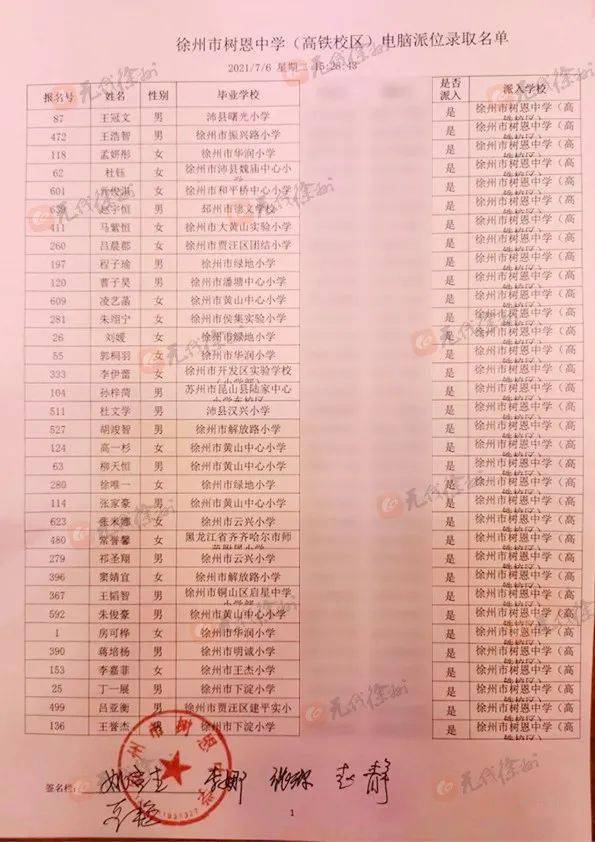 徐州市树恩中学（高铁校区）电脑派位录取名单
2021/7/6 星期二 15:28:43
报名号 姓名 性别 毕业学校 是否派入 派入学校
87 王冠文 男 沛县曙光小学 是 徐州市树恩中学（高铁校区）
472 王浩智 男 徐州市振兴路小学 是 徐州市树恩中学（高铁校区）
118 孟妍彤 女 徐州市华润小学 是 徐州市树恩中学（高铁校区）
62 杜钰 女 徐州市沛县魏庙中心小学 是 徐州市树恩中学（高铁校区）
601 女 徐州市和平桥中心小学 是 徐州市树恩中学（高铁校区）
男 邳州市德文学校 是 徐州市树恩中学（高铁校区）
411 马紫恒 女 徐州市大黄山实验小学 是 徐州市树恩中学（高铁校区）
260 吕晨郡 女 徐州市贾汪区团结小学 是 徐州市树恩中学（高铁校区）
197 程子瑜 男 徐州市绿地小学 是 徐州市树恩中学（高铁校区）
120 曹子昊 男 徐州市潘塘中心小学 是 徐州市树恩中学（高铁校区）
609 凌艺菡 女 徐州市黄山中心小学 是 徐州市树恩中学（高铁校区）
281 朱翊宁 女 徐州市侯集实验小学 是 徐州市树恩中学（高铁校区）
26 刘媛 女 徐州市绿地小学 是 徐州市树恩中学（高铁校区）
55 郭桐羽 女 徐州市华润小学 是 徐州市树恩中学（高铁校区）
333 李伊蕾 女 徐州市开发区实验学校（小学部） 是 徐州市树恩中学（高铁校区）
104 孙梓菏 男 苏州市昆山县陆家中心小学东校区 是 徐州市树恩中学（高铁校区）
511 杜文学 男 沛县汉兴小学 是 徐州市树恩中学（高铁校区）
527 胡竣智 男 徐州市解放路小学 是 徐州市树恩中学（高铁校区）
124 高一杉 女 徐州市黄山中心小学 是 徐州市树恩中学（高铁校区）
63 柳天恒 男 徐州市黄山中心小学 是 徐州市树恩中学（高铁校区）
280 徐唯一 女 徐州市绿地小学 是 徐州市树恩中学（高铁校区）
114 张家豪 男 徐州市黄山中心小学 是 徐州市树恩中学（高铁校区）
623 张米娜 女 徐州市云兴小学 是 徐州市树恩中学（高铁校区）
480 常誉馨 女 黑龙江省齐齐哈尔市师范附属小学 是 徐州市树恩中学（高铁校区）
279 祁圣翔 男 徐州市云兴小学 是 徐州市树恩中学（高铁校区）
396 窦婧宜 女 徐州市解放路小学 是 徐州市树恩中学（高铁校区）
367 王韬智 男 徐州市铜山区启星中学小学部 是 徐州市树恩中学（高铁校区）
592 朱俊豪 男 徐州市黄山中心小学 是 徐州市树恩中学（高铁校区）
1 房可桦 女 徐州市华润小学 是 徐州市树恩中学（高铁校区）
390 蒋培杨 男 徐州市明诚小学 是 徐州市树恩中学（高铁校区）
153 李嘉菲 女 徐州市王杰小学 是 徐州市树恩中学（高铁校区）
25 丁一展 男 徐州市下淀小学 是 徐州市树恩中学（高铁校区）
499 吕亚衡 男 徐州市贾汪区建平实小 是 徐州市树恩中学（高铁校区）
136 王誉杰 男 徐州市下淀小学 是 徐州市树恩中学（高铁校区）
签名栏：
李娜
赵静
1
无线徐州